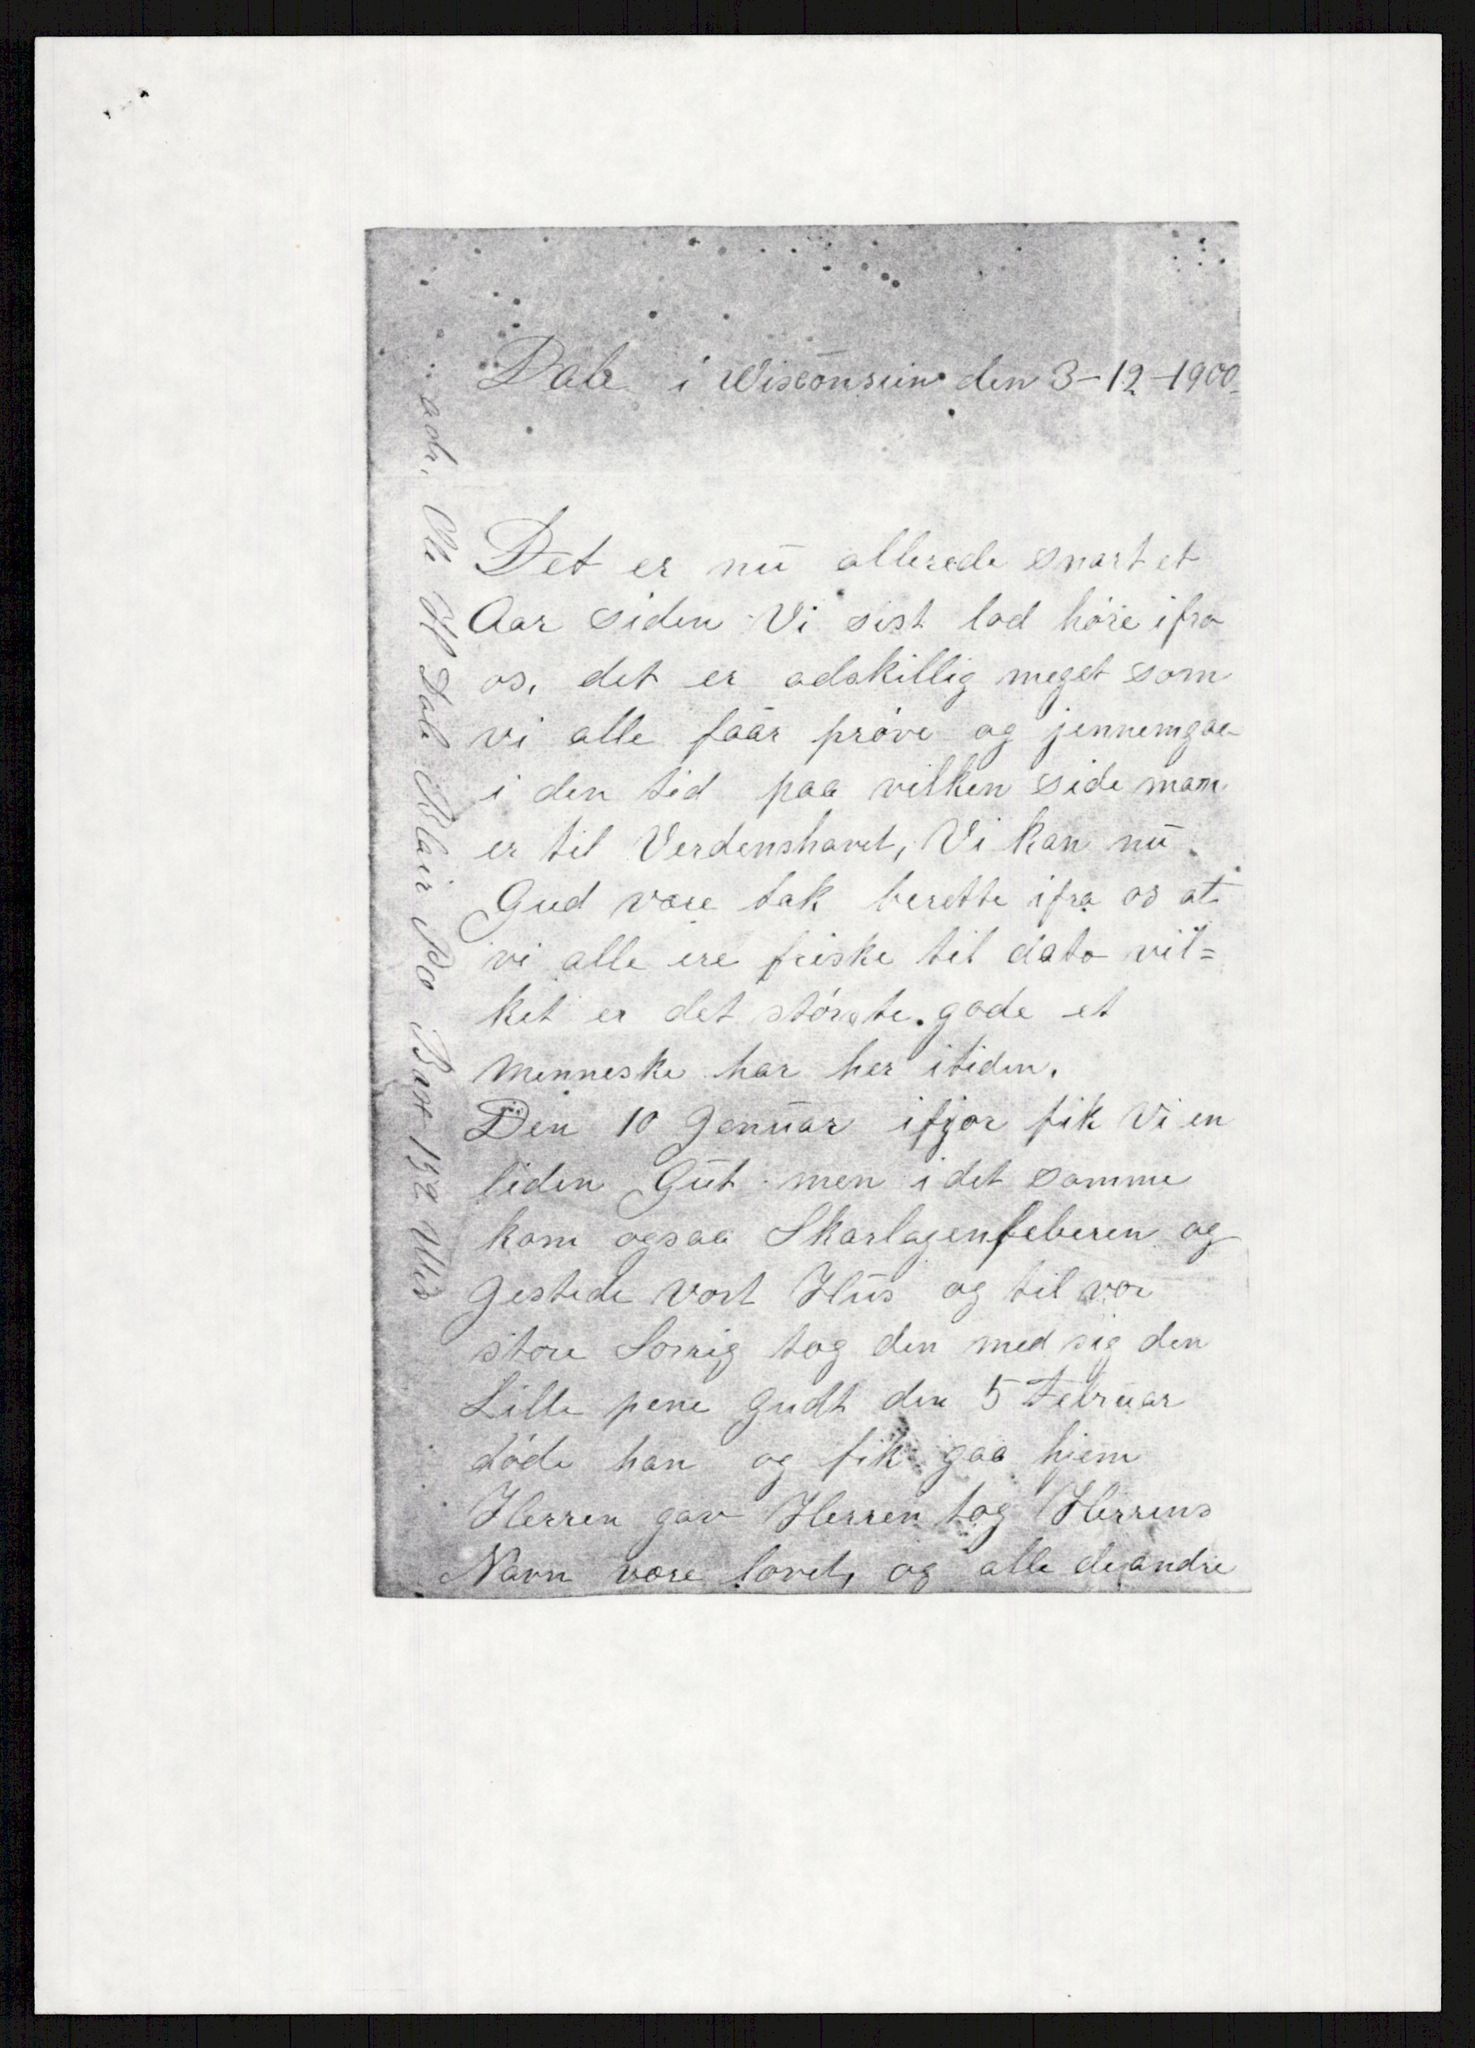 Dale i Wisconsein den 3-12-1900
Det er nu allerede snart et
Aar siden Vi sist lod høre ifra
os, det er adskillig meget som
vi alle faar prøve og jennemgaa
i den tid paa vilken side man
er til Verdenshavet, Vi kan nu
Gud være tak berette ifra os at
vi alle ere friske til dato vil=
ket er det største gode et
menneske har her i tiden.
Den 10 Januar ifjor fik Vi en
liden Gut men i det samme
kom ogsaa Skarlagenfeberen og
gestede vort Hus og til vor
store Sorrig tog den med sig den
Lille pene Gudt den 5 Februar
døde han og fik gaa hjem
Herren gav Herren tog Herrens
Navn være lovet, og alle de andre
adr. Ole H Dale Blair PO Box 192 Wis